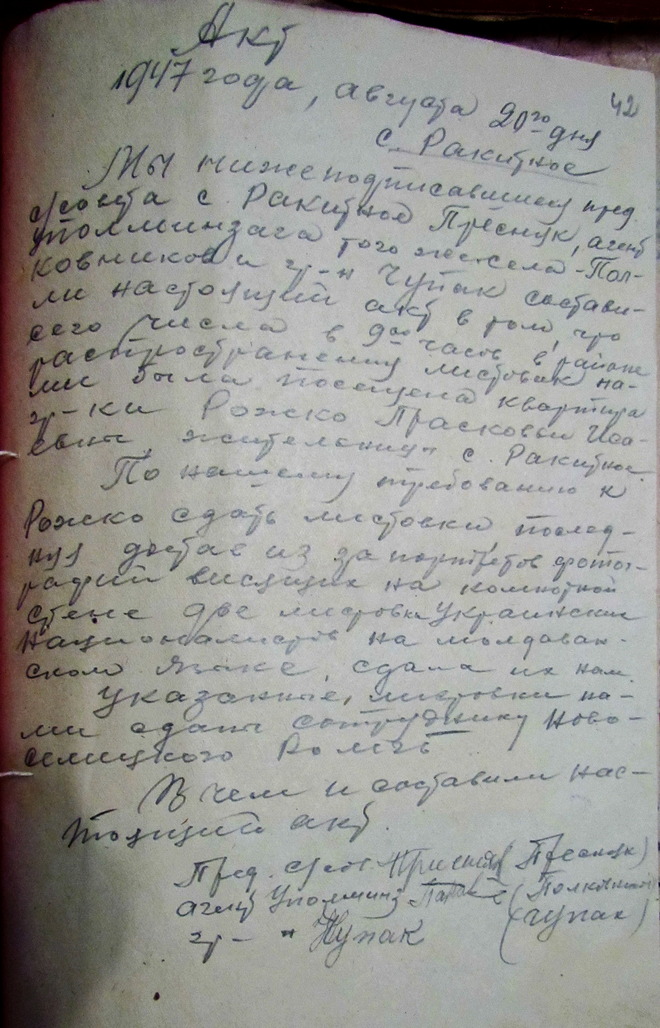 Акт
1947 года, августа 20го дня
42
с. Ракитное
Мы нижеподписавшиеся пред.
с/совета с. Ракитное Преснюк, агент
Уполминзага того же села - Пол-
ковников и гр-н Чупак состави-
ли настоящий акт в том, что
сего числа в 9 00 часов в районе
распространения листовок на-
ми была посещена квартира
гр-ки Рожко Прасковьи Иса-
евны, жительницы с. Ракитное.
По нашему требованию к
Рожко сдать листовки, послед-
няя достав из за портретов фотог-
рафий висящих на комнатной
стене две листовки украинских
националистов на молдаван-
ском языке, сдала их нам.
Указанные, листовки на-
ми сданы сотруднику Ново-
селицкого РО МГБ
В чем и составили нас-
тоящий акт.
Пред. с/сов (Преснюк)
агент Уполминз (Полковников)
гр-н Чупак (Чупак)